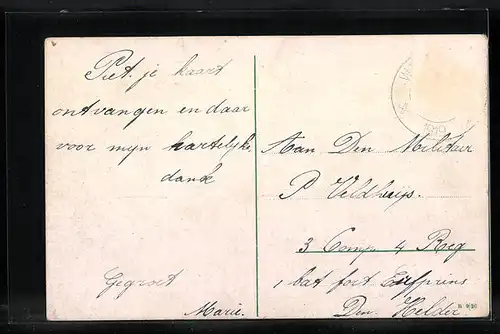 Piet je kaart
ontvangen en daar
voor mijn hartelijke
dank
Gegroet
Marie.
Aan Den Militair
P Veldhuijs.
3 Comp 4 Reg
1 bat fort Erfprins
Den Helder